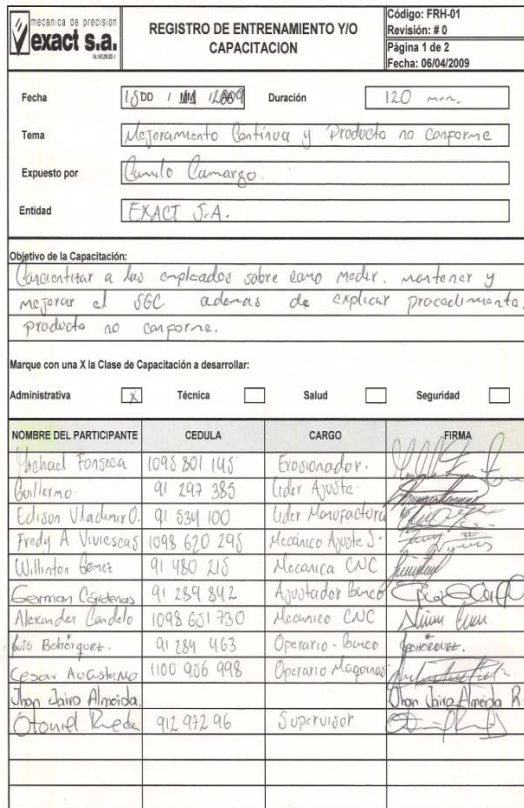 mecánica de precisión
exact s.a.
REGISTRO DE ENTRENAMIENTO Y/O CAPACITACION
Código: FRH-01
Revisión: # 0
Página 1 de 2
Fecha: 06/04/2009
Fecha DD / MM / Duración 120 min.
Tema Mejoramiento Continua y Producto no conforme
Expuesto por Camilo Camargo.
Entidad EXACT S.A.
Objetivo de la Capacitación:
Concientitar a los empleados sobre como medir, mantener y
mejorar el SGC ademas de explicar procedimiento
producto no conforme.
Marque con una X la Clase de Capacitación a desarrollar:
Administrativa X Técnica Salud Seguridad
NOMBRE DEL PARTICIPANTE CEDULA CARGO FIRMA
Michael Fonseca 1095 801 145 Erosionador.
Guillermo 91 297 385 Lider Ajuste
Edison Vladimir O. 91 534 100 Lider Manufactura
Fredy A Viviescas 1098 620 295 Mecánico Ajuste
Willinton Gomez 91 480 215 Mecanica CNC
German Cárdenas 91 289 842 Ajustador Banco
Alexander Candelo 1098 651 730 Mecanico CNC
Luis Bohórquez. 91 284 463 Operario - Banco BOHORQUEZ.
Cesar 1100 956 998 Operario Maquinas
Jhon Jairo Almeida. Jhon Jairo Almeida R
Otoniel Rueda 912 972 96 Supervisor